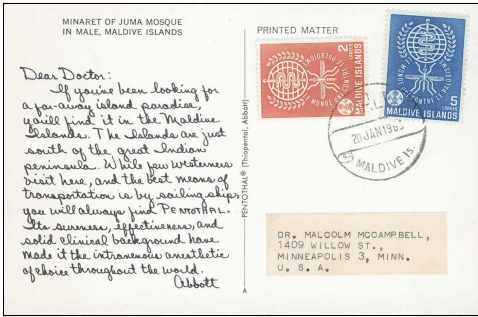 MINARET OF JUMA MOSQUE
IN MALE, MALDIVE ISLANDS
PRINTED MATTER
Dear Doctor:
If you've been looking for
a far-away island paradise,
you'll find it in the Maldive
Islands. The Islands are just
south of the great Indian
peninsula. While few westerners
visit here, and the best means of
transportation is by sailing ships,
you will always find PENTOTHAL.
Its sureness, effectiveness, and
solid clinical background have
made it the intravenous anesthetic
of choice throughout the world.
Abbott
PENTOTHAL® (Thiopental, Abbott)
A
2 LAREES
LE MONDE UNI CONTRE LE PALUDISME
MALDIVE ISLANDS
LE MONDE UNI CONTRE LE PALUDISME
5 LAREES
MALDIVE ISLANDS
20 JAN 1963
MALDIVE IS.
DR. MALCOLM MCCAMPBELL,
1409 WILLOW ST.,
MINNEAPOLIS 3, MINN.
U. S. A.